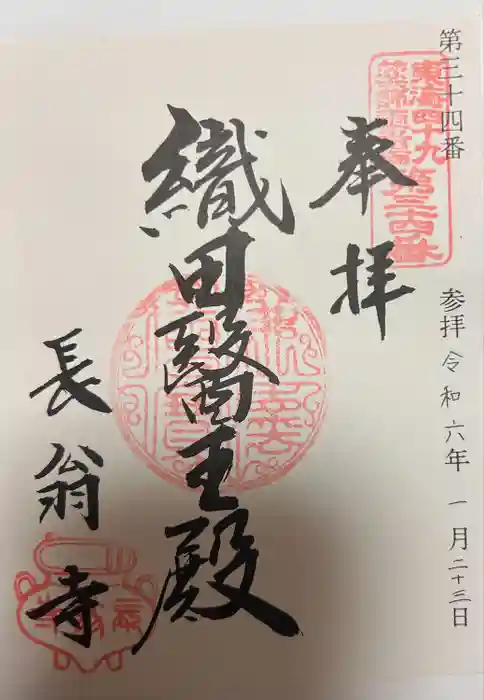 第三十四番
参拝 令和六年 一月二十三日
東海四十九
薬師霊場第三十四番
奉拝
織田醫王殿
長翁寺